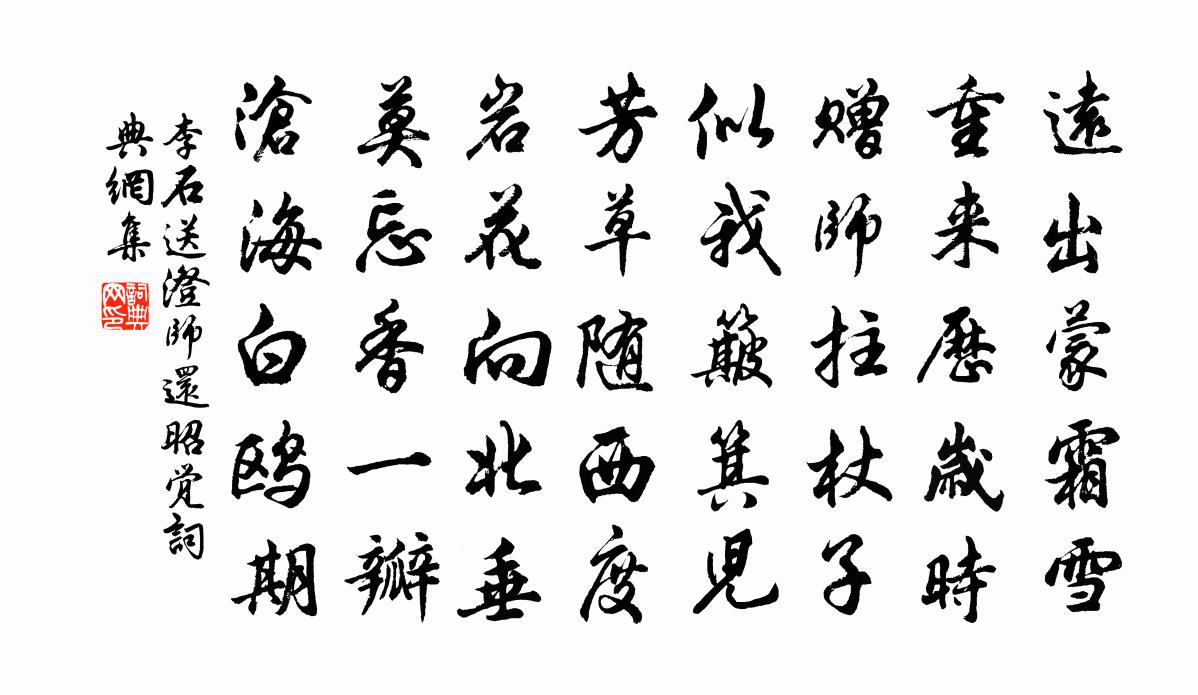 遠出蒙霜雪
重来歷歲時
赠師拄杖子
似我簸箕児
芳草随西度
岩花向北垂
莫忘香一瓣
滄海白鸥期
李石送澄師還昭觉詞
典網集
詞典網印